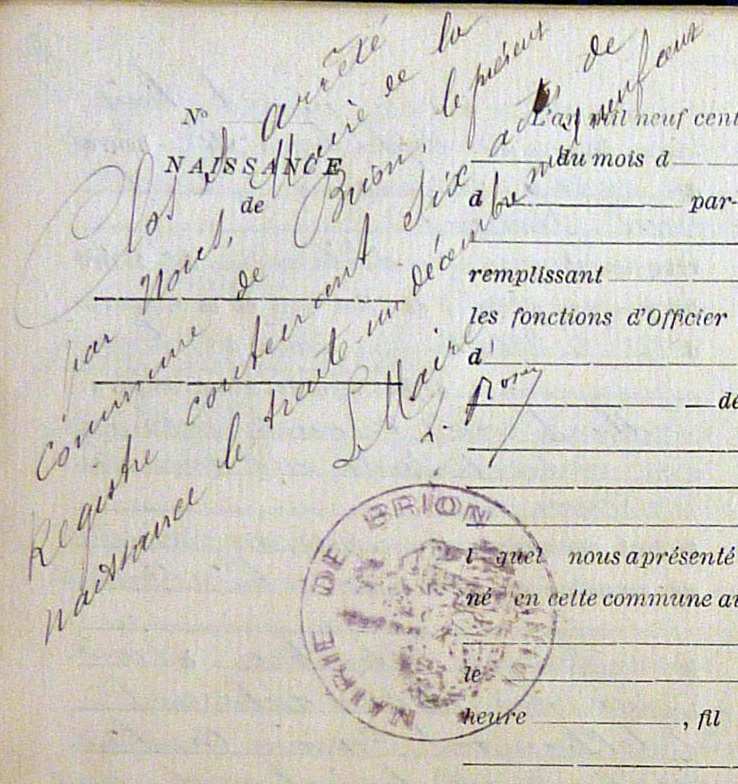 Nº
NAISSANCE
de
Clos et arrêté
par nous, Maire de la
commune de Brion, le présent
Registre contenant six actes de
naissance le trente-un décembre mil neuf cent
Le Maire
L'an mil neuf cent
du mois d
d par-
remplissant
les fonctions d'Officier
d
dé
l quel nous a présenté
né en cette commune au
le
heure , fil
MAIRIE DE BRION